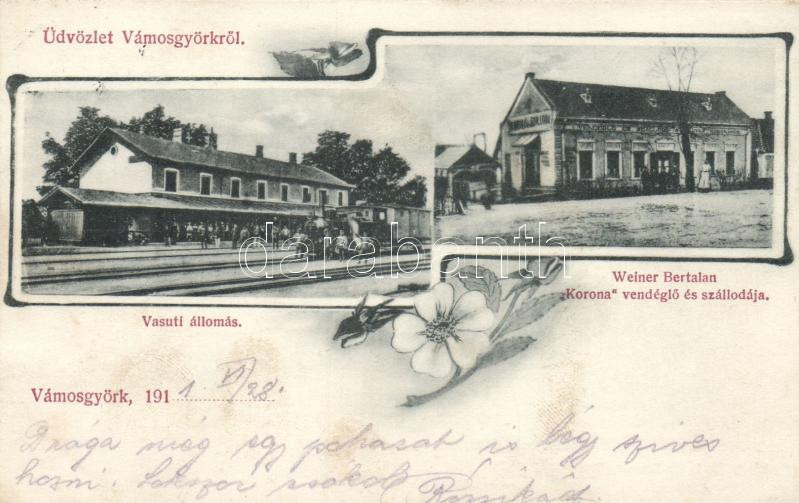 Üdvözlet Vámosgyörkről.
darabanth
Weiner Bertalan
„Korona" vendéglő és szállodája.
Vasuti állomás.
Vámosgyörk, 1911 VI/28.
Drága még egy poharat is légy szives
hozni. Sokszor csókol